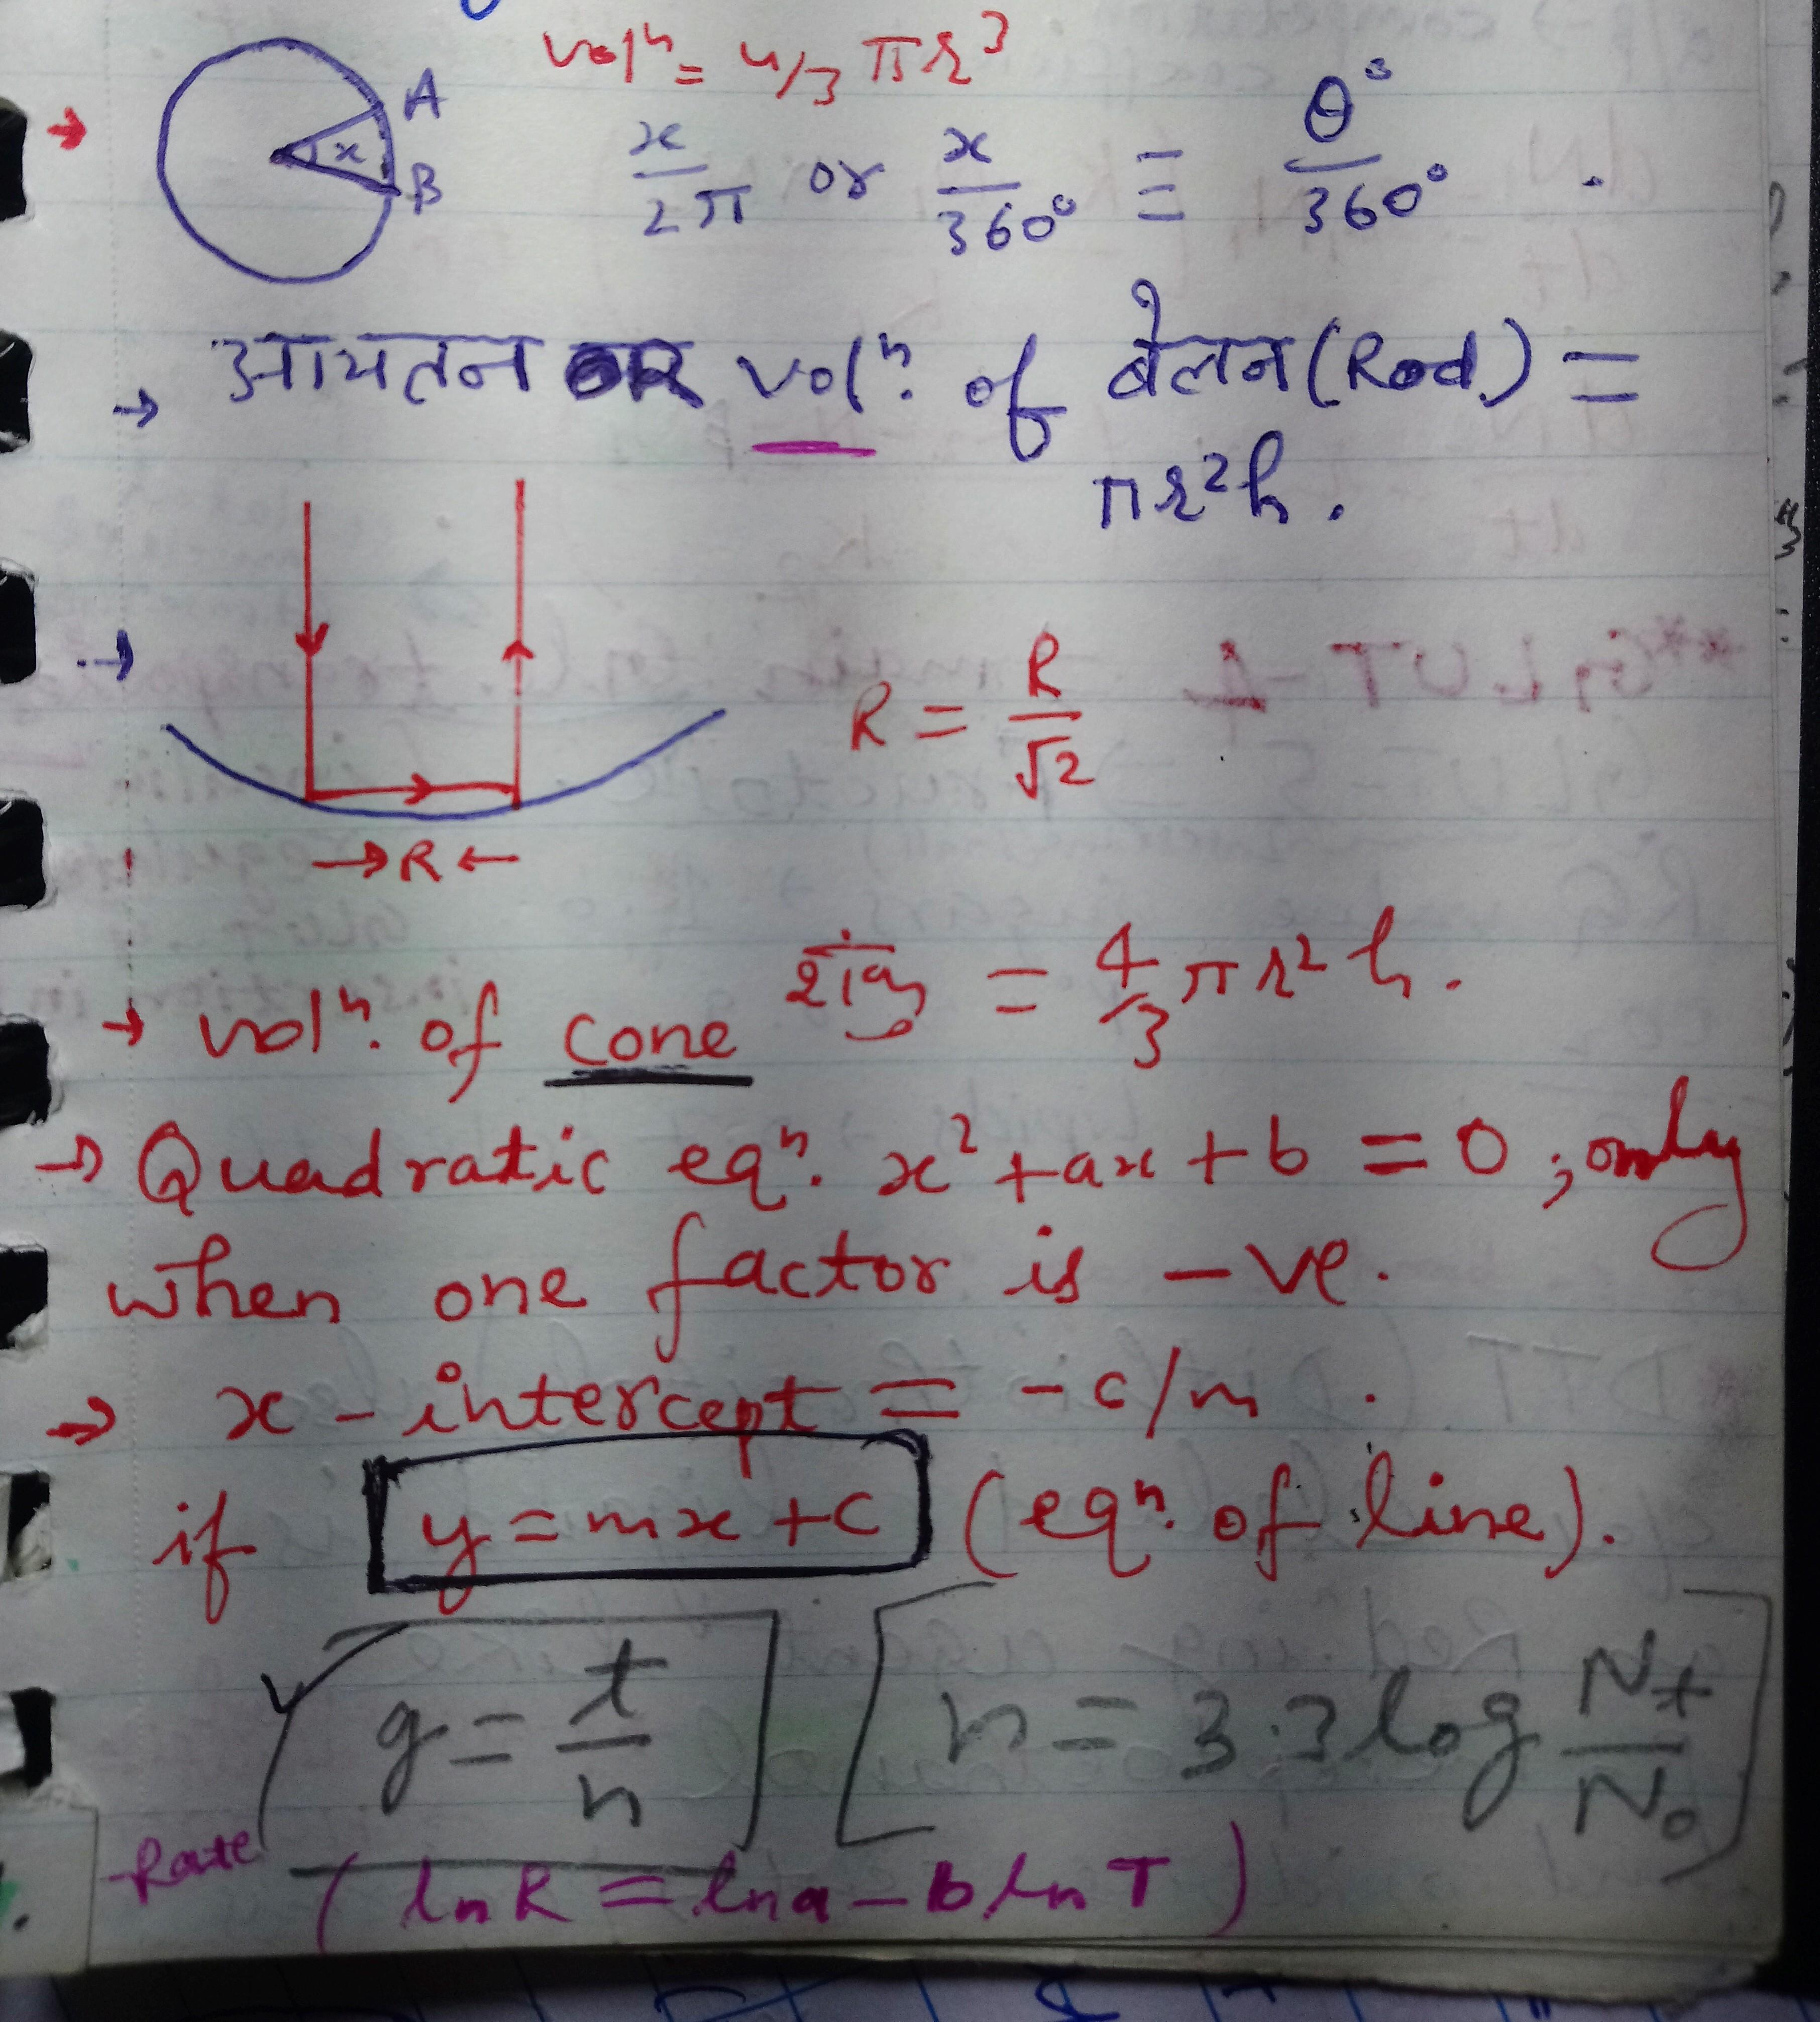 volⁿ = 4/3 πr³
A
x
B
x/2π or x/360° ≡ θ°/360°.
→ आयतन OR volⁿ. of बेलन (Rod.) =
πr²h.
→ R = R/√2
→ R ←
→ volⁿ. of cone शंकु = 4/3 πr²h.
→ Quadratic eqⁿ. x² + ax + b = 0 ; only
when one factor is -ve.
→ x - intercept = -c/m.
if y = mx + c (eqⁿ. of line).
g = t/n n = 3.3 log Nt/N₀
Rate (ln R = ln a - b ln T)